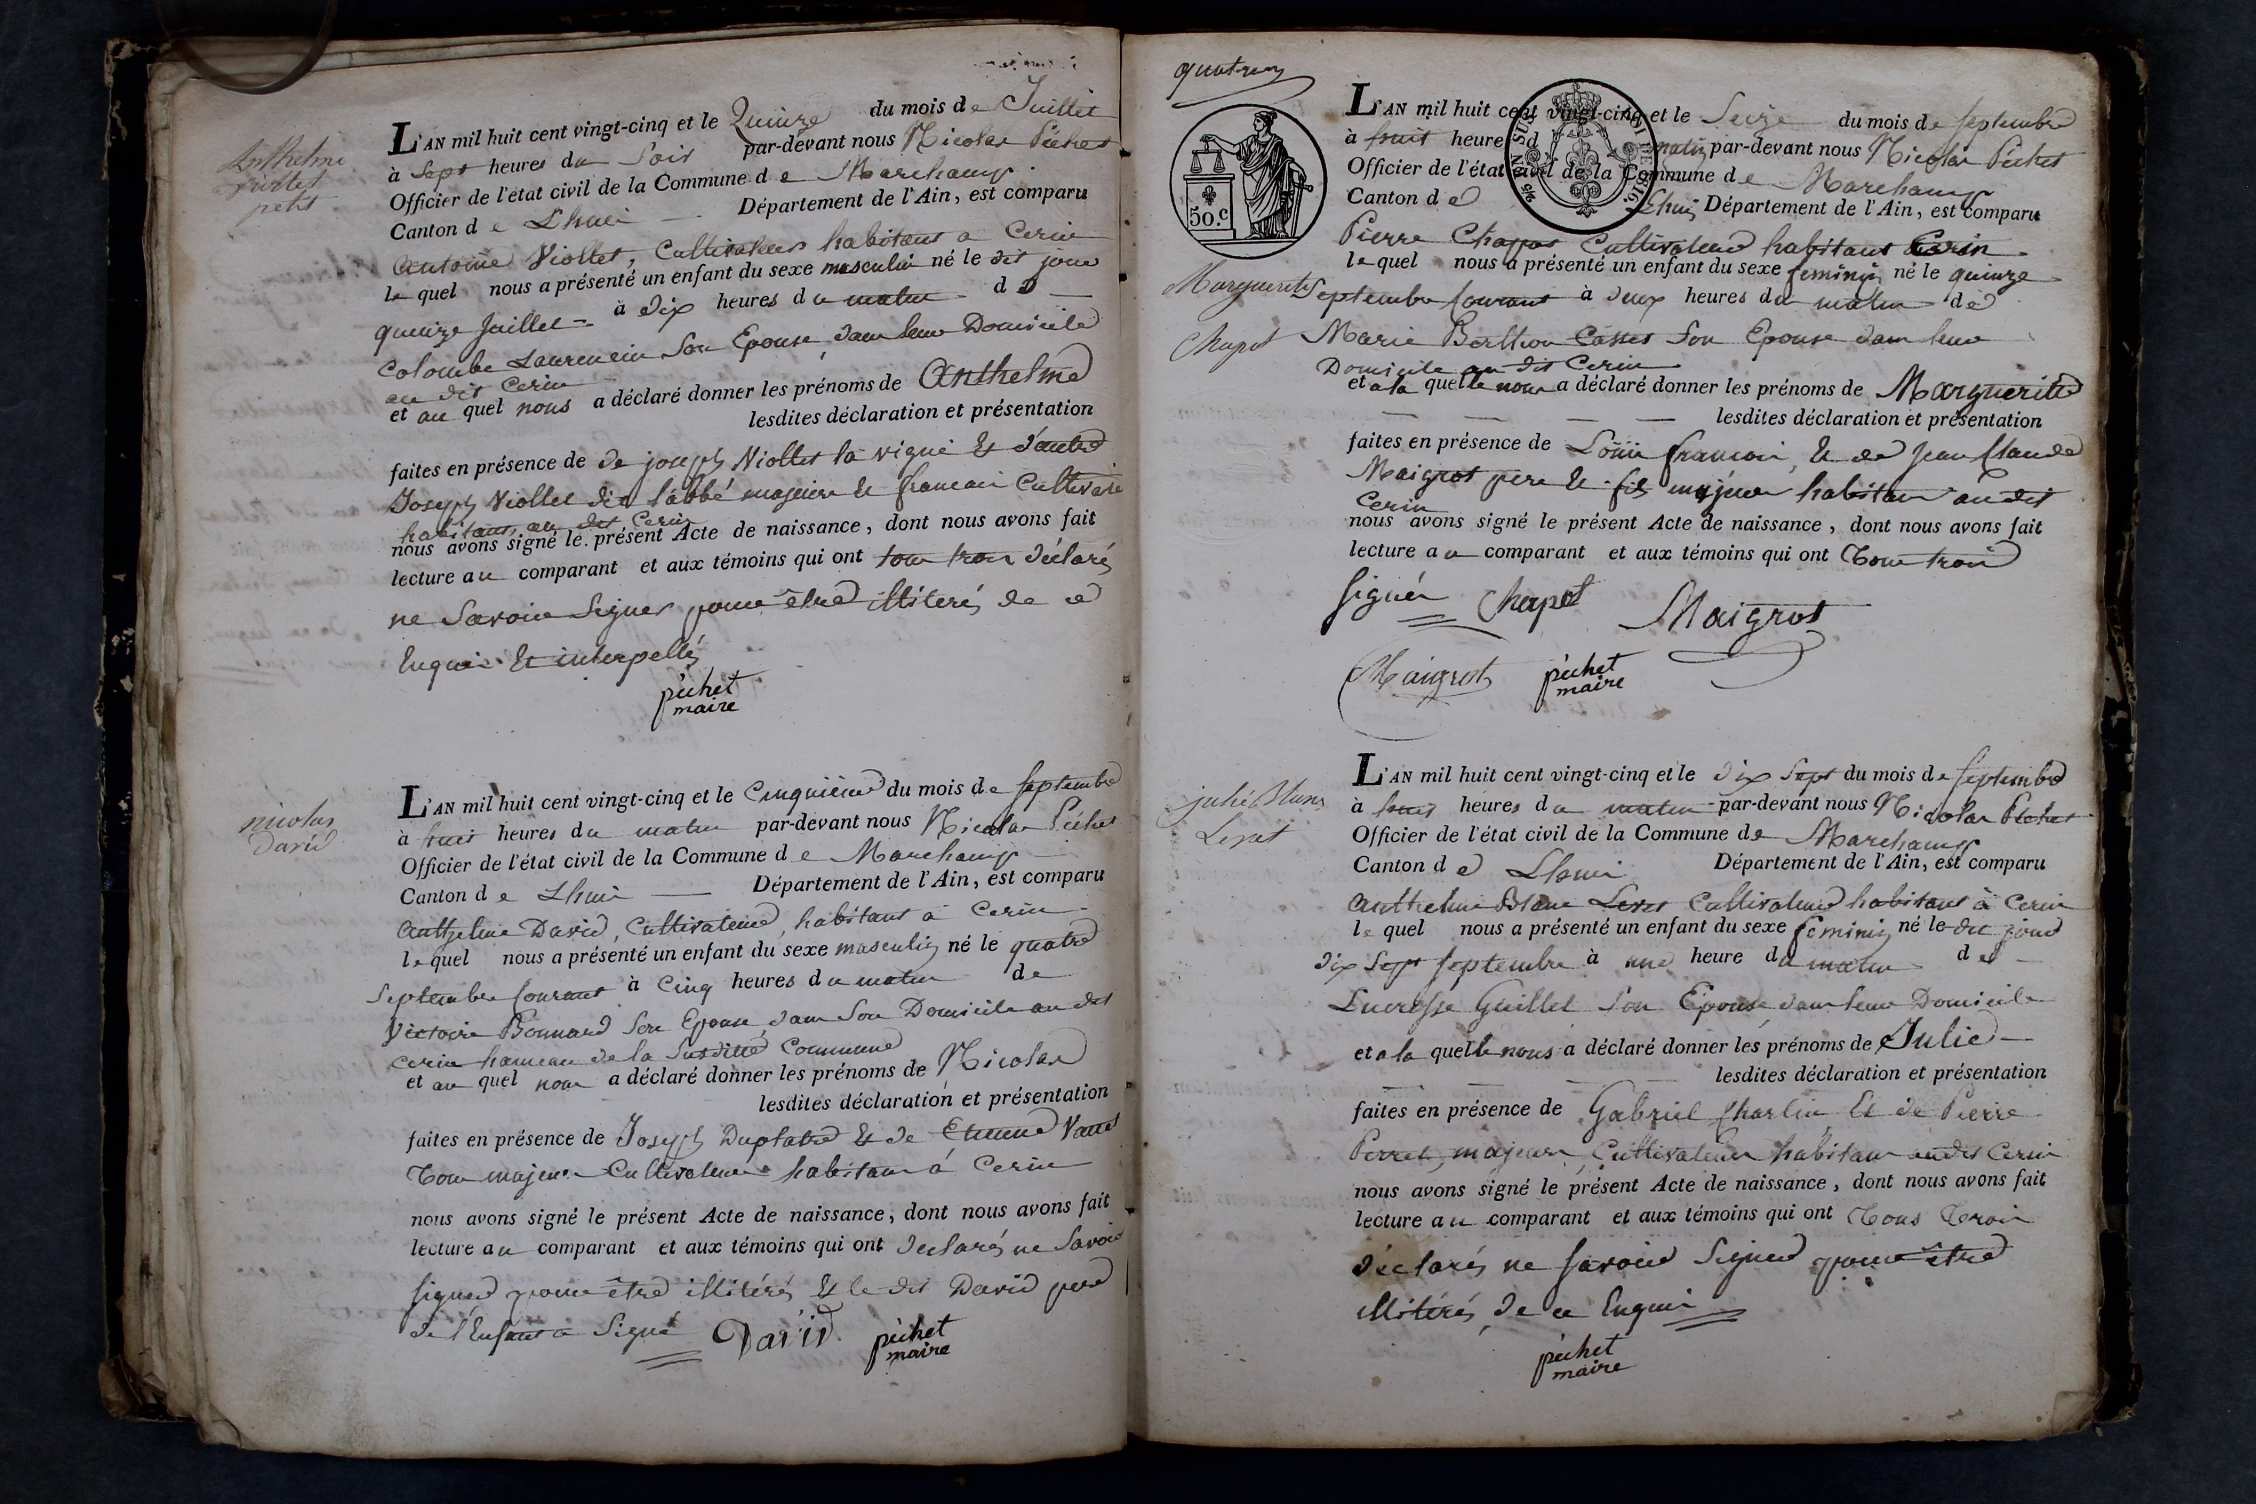 Anthelme
Viollet
petit
L'AN mil huit cent vingt-cinq et le Quinze du mois de Juillet
à Sept heures du Soir par-devant nous Nicolas Péchet
Officier de l'état civil de la Commune de Marchamp
Canton de Lhuis Département de l'Ain, est comparu
Antoine Viollet, Cultivateur habitant a Cerin
lequel nous a présenté un enfant du sexe masculin né le dit jour
quinze Juillet à dix heures du matin de
Colombe Laurencin Son Epouse, dans leur Domicile
au dit Cerin
et au quel nous a déclaré donner les prénoms de Anthelme
lesdites déclaration et présentation
faites en présence de de joseph Viollet la vigne Et d'autre
Joseph Viollet dit l'abbé majeurs et francais Cultivat
habitans au dit Cerin
nous avons signé le présent Acte de naissance, dont nous avons fait
lecture au comparant et aux témoins qui ont tous trois déclarés
ne Savoir Signer pour être illiterés de ce
Enquis Et interpellés
péchet
maire
nicolas
David
L'AN mil huit cent vingt-cinq et le Cinquième du mois de Septembre
à huit heures du matin par-devant nous Nicolas Péchet
Officier de l'état civil de la Commune de Marchamp
Canton de Lhuis Département de l'Ain, est comparu
Anthelme David, Cultivateur, habitant à Cerin
lequel nous a présenté un enfant du sexe masculin né le quatre
Septembre Courant à Cinq heures du matin de
Victoire Bonnard Son Epouse, dans Son Domicile au dit
Cerin hameau de la Susditte Commune
et au quel nous a déclaré donner les prénoms de Nicolas
lesdites déclaration et présentation
faites en présence de Joseph Duplatre Et de Etienne
Tous majeurs Cultivateurs habitans à Cerin
nous avons signé le présent Acte de naissance, dont nous avons fait
lecture au comparant et aux témoins qui ont declarés ne Savoir
Signer pour être illitérés Et le dit David pere
de l'Enfant a Signé David péchet
maire
L'AN mil huit cent vingt-cinq et le Seize du mois de Septembre
à huit heures du matin par-devant nous Nicolas Péchet
Officier de l'état civil de la Commune de Marchamp
Canton de Lhuis Département de l'Ain, est comparu
50.c
Pierre Chapot Cultivateur habitant Cerin
lequel nous a présenté un enfant du sexe feminin né le quinze
Marguerite
Septembre Courant à deux heures du matin de
Chapot
Marie Berllion Son Epouse dans leur
Domicile au dit Cerin
et a la quelle nous a déclaré donner les prénoms de Marguerite
lesdites déclaration et présentation
faites en présence de Louis francois, Et de Jean Claude
Maigrot pere Et fils majeur habitans au dit
Cerin
nous avons signé le présent Acte de naissance, dont nous avons fait
lecture au comparant et aux témoins qui ont Tous trois
Signés Chapot Maigrot
Maigrot péchet
maire
julie Blanc
Levet
L'AN mil huit cent vingt-cinq et le dix Sept du mois de Septembre
à huit heures du matin par-devant nous Nicolas Péchet
Officier de l'état civil de la Commune de Marchamp
Canton de Lhuis Département de l'Ain, est comparu
Anthelme Blanc Levet Cultivateur habitant à Cerin
lequel nous a présenté un enfant du sexe feminin né le dit jour
dix Sept Septembre à une heure du matin de
Lucresse Guillet Son Epouse, dans leur Domicile
et a la quelle nous a déclaré donner les prénoms de Julie
lesdites déclaration et présentation
faites en présence de Gabriel Charlin Et de Pierre
Perret, majeurs Cultivateurs habitans au dit Cerin
nous avons signé le présent Acte de naissance, dont nous avons fait
lecture au comparant et aux témoins qui ont Tous Trois
déclarés ne Savoir Signer pour être
illitérés, de ce Enquis
péchet
maire